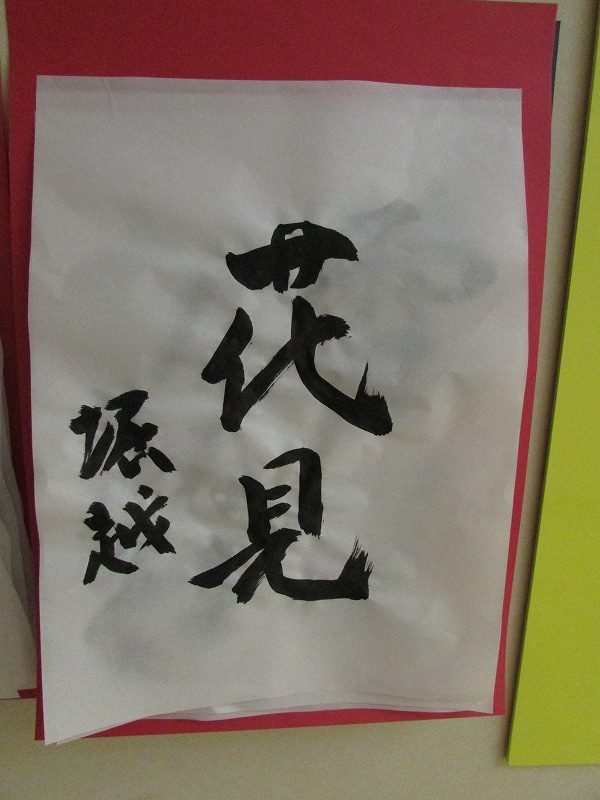 花見
堀越